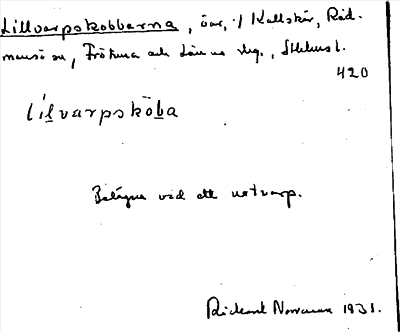 Lillvarpskobbarna, öar, i Kallskär, Råd-
mansö sn, Frötuna och Länna skg., Sthlms l.
420
lilvarpskòba
vid ett notvarp.
Rickard Norrman 1931.